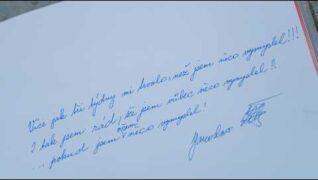 Více jak tři týdny mi trvalo, než jsem něco vymyslel!!!
I tak jsem rád, že jsem vůbec něco vymyslel?
... pokud jsem něco vymyslel!